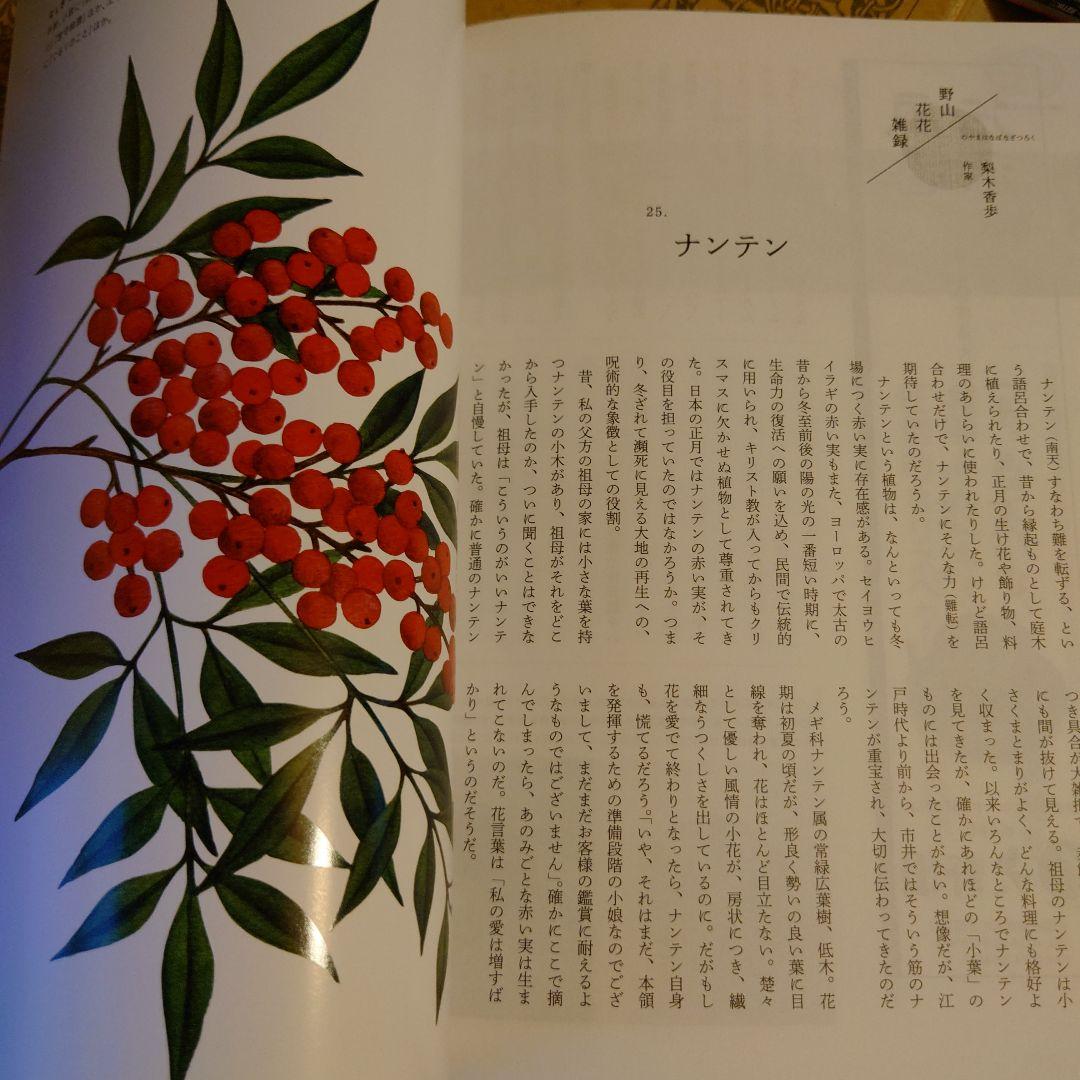 野山
花花
雑録
のやまはなばなざつろく
梨木香歩
作家
25.
ナンテン
ナンテン（南天）すなわち難を転ずる、とい
う語呂合わせで、昔から縁起ものとして庭木
に植えられたり、正月の生け花や飾り物、料
理のあしらいに使われたりした。けれど語呂
合わせだけで、ナンテンにそんな力（難転）を
期待していたのだろうか。
ナンテンという植物は、なんといっても冬
場につく赤い実に存在感がある。セイヨウヒ
イラギの赤い実もまた、ヨーロッパで太古の
昔から冬至前後の陽の光の一番短い時期に、
生命力の復活への願いを込め、民間で伝統的
に用いられ、キリスト教が入ってからもクリ
スマスに欠かせぬ植物として尊重されてき
た。日本の正月ではナンテンの赤い実が、そ
の役目を担っていたのではなかろうか。つま
り、冬ざれて瀕死に見える大地の再生への、
呪術的な象徴としての役割。
昔、私の父方の祖母の家には小さな葉を持
つナンテンの小木があり、祖母がそれをどこ
から入手したのか、ついに聞くことはできな
かったが、祖母は「こういうのがいいナンテ
ン」と自慢していた。確かに普通のナンテン
つき具合が大雑把で
にも間が抜けて見える。祖母のナンテンは小
さくまとまりがよく、どんな料理にも格好よ
く収まった。以来いろんなところでナンテン
を見てきたが、確かにあれほどの「小葉」の
ものには出会ったことがない。想像だが、江
戸時代より前から、市井ではそういう筋のナ
ンテンが重宝され、大切に伝わってきたのだ
ろう。
メギ科ナンテン属の常緑広葉樹、低木。花
期は初夏の頃だが、形良く勢いの良い葉に目
線を奪われ、花はほとんど目立たない。楚々
として優しい風情の小花が、房状につき、繊
細なうつくしさを出しているのに。だがもし
花を愛でて終わりとなったら、ナンテン自身
も、慌てるだろう。「いや、それはまだ、本領
を発揮するための準備段階の小娘なのでござ
いまして、まだまだお客様の鑑賞に耐えるよ
うなものではございません」。確かにここで摘
んでしまったら、あのみごとな赤い実は生ま
れてこないのだ。花言葉は「私の愛は増すば
かり」というのだそうだ。